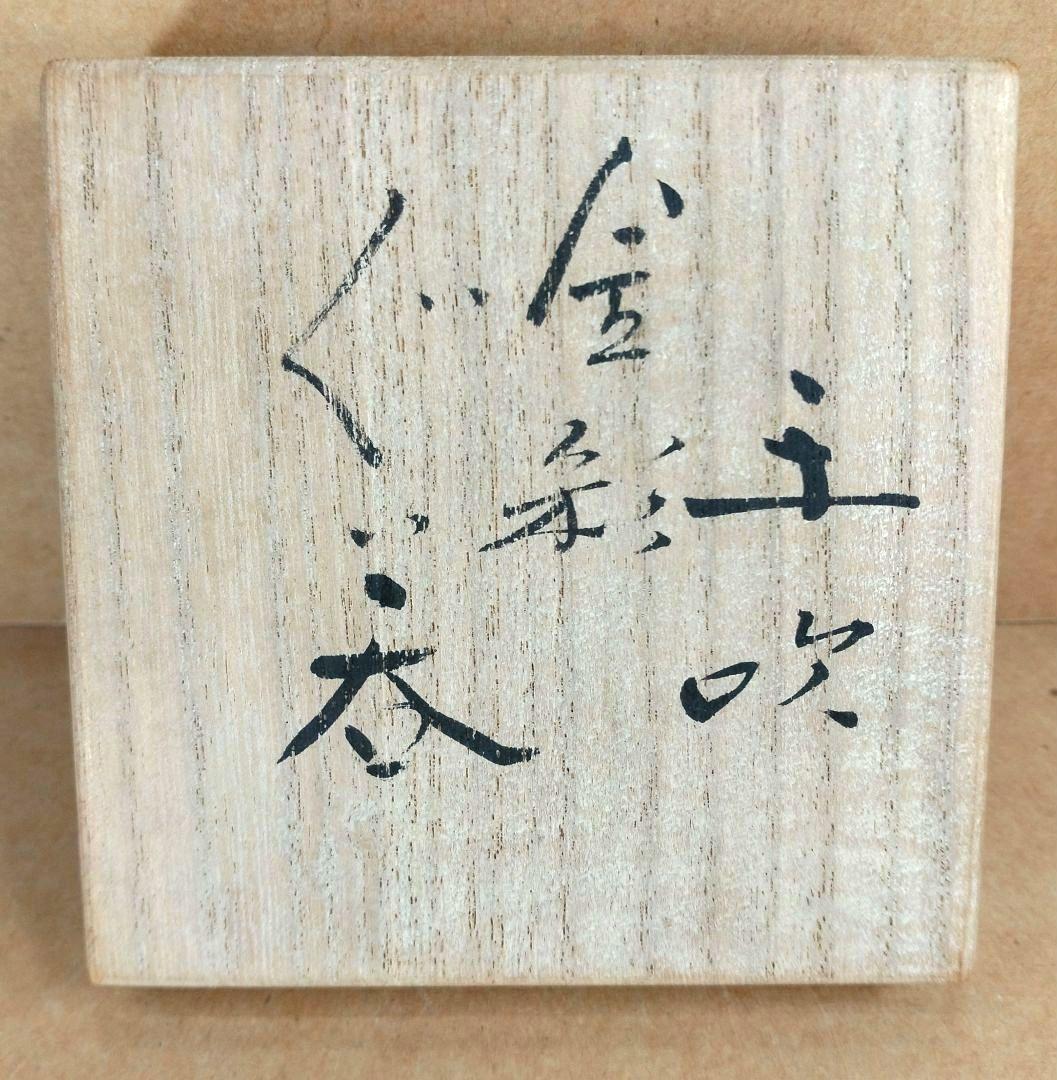 手吹
金彩
ぐい呑